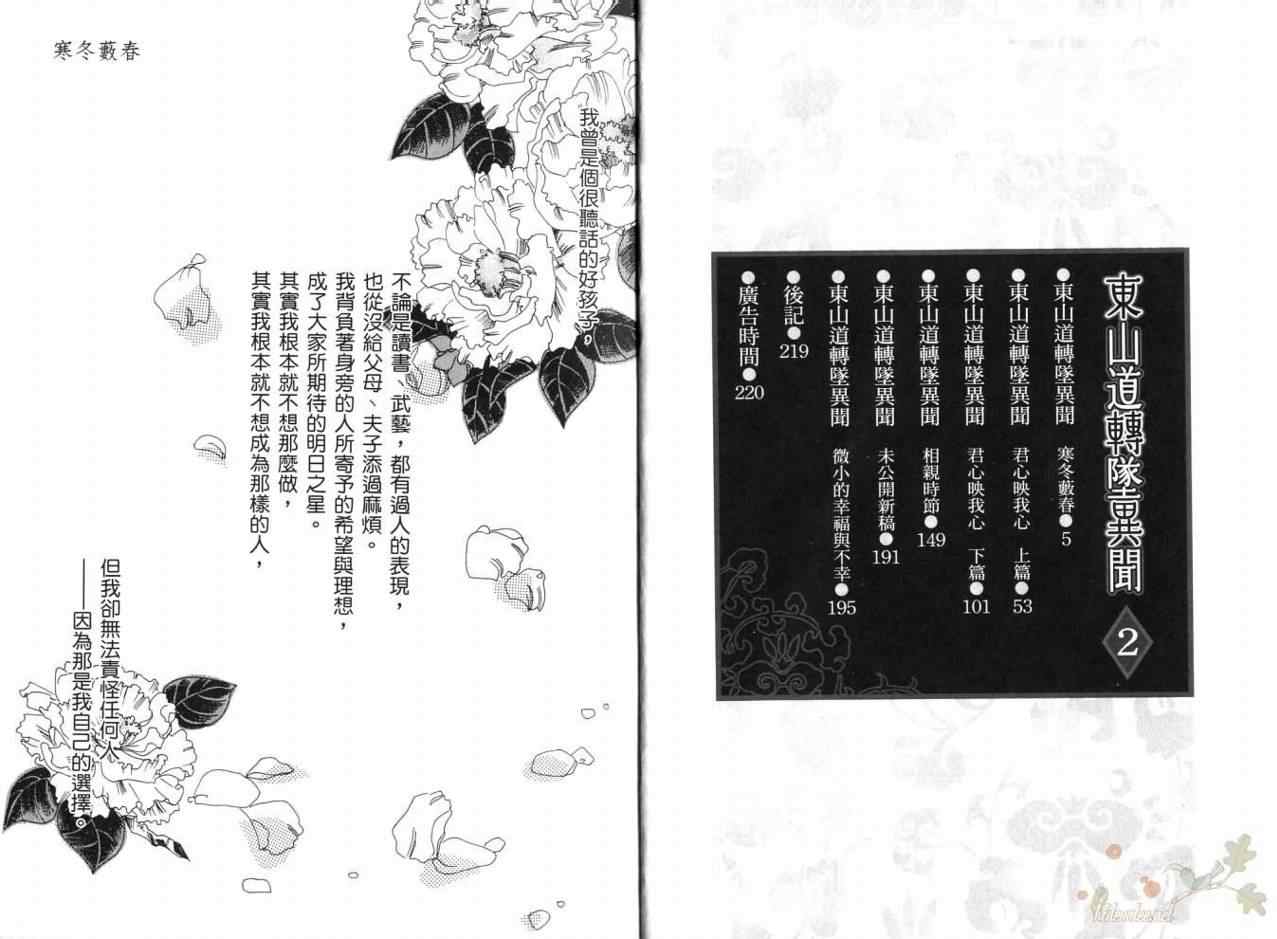 東山道轉墜異聞
2
●東山道轉墜異聞 寒冬藪春●5
●東山道轉墜異聞 君心映我心 上篇●53
●東山道轉墜異聞 君心映我心 下篇●101
●東山道轉墜異聞 相親時節●149
●東山道轉墜異聞 未公開新稿●191
●東山道轉墜異聞 微小的幸福與不幸●195
●後記●219
●廣告時間●220
寒冬藪春
我曾是個很聽話的好孩子，
不論是讀書、武藝，都有過人的表現，
也從沒給父母、夫子添過麻煩。
我背負著身旁的人所寄予的希望與理想，
成了大家所期待的明日之星。
其實我根本就不想那麼做，
其實我根本就不想成為那樣的人，
但我卻無法責怪任何人
——因為那是我自己的選擇。